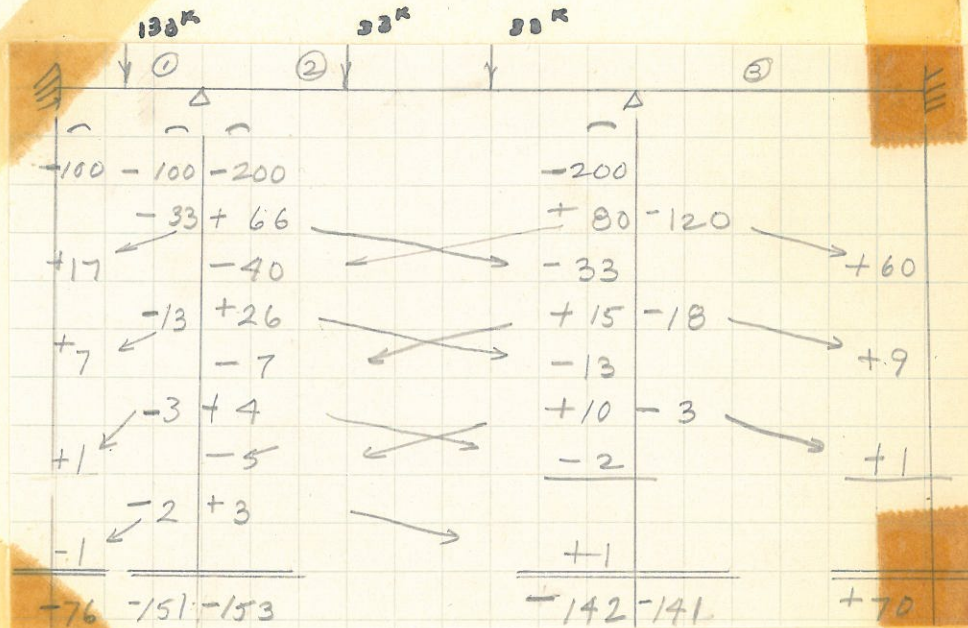 133K 33K 33K
① ② ③
-100 -100 -200 -200
-33 +66 +80 -120
+17 -40 -33 +60
-13 +26 +15 -18
+7 -7 -13 +9
-3 +4 +10 -3
+1 -5 -2 +1
-2 +3
-1 +1
-76 -151 -153 -142 -141 +70